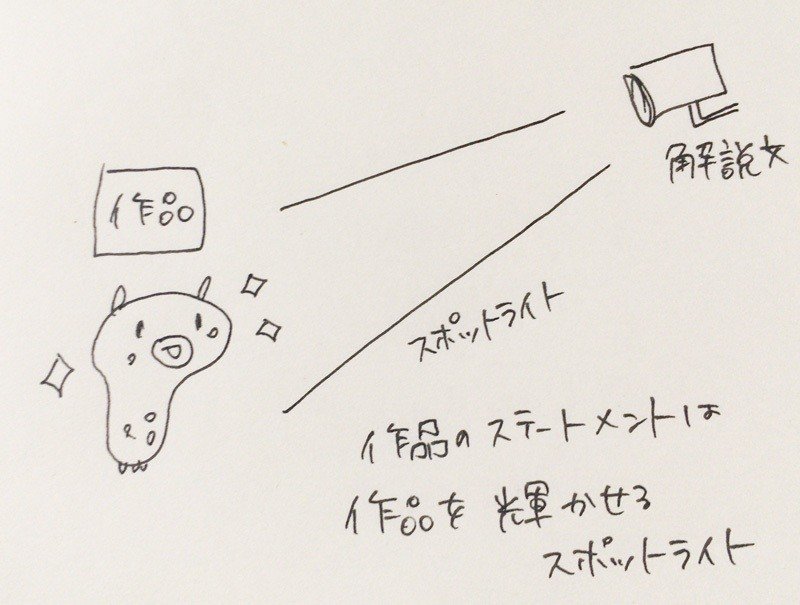 解説文
作品
スポットライト
作品のステートメントは
作品を輝かせる
スポットライト